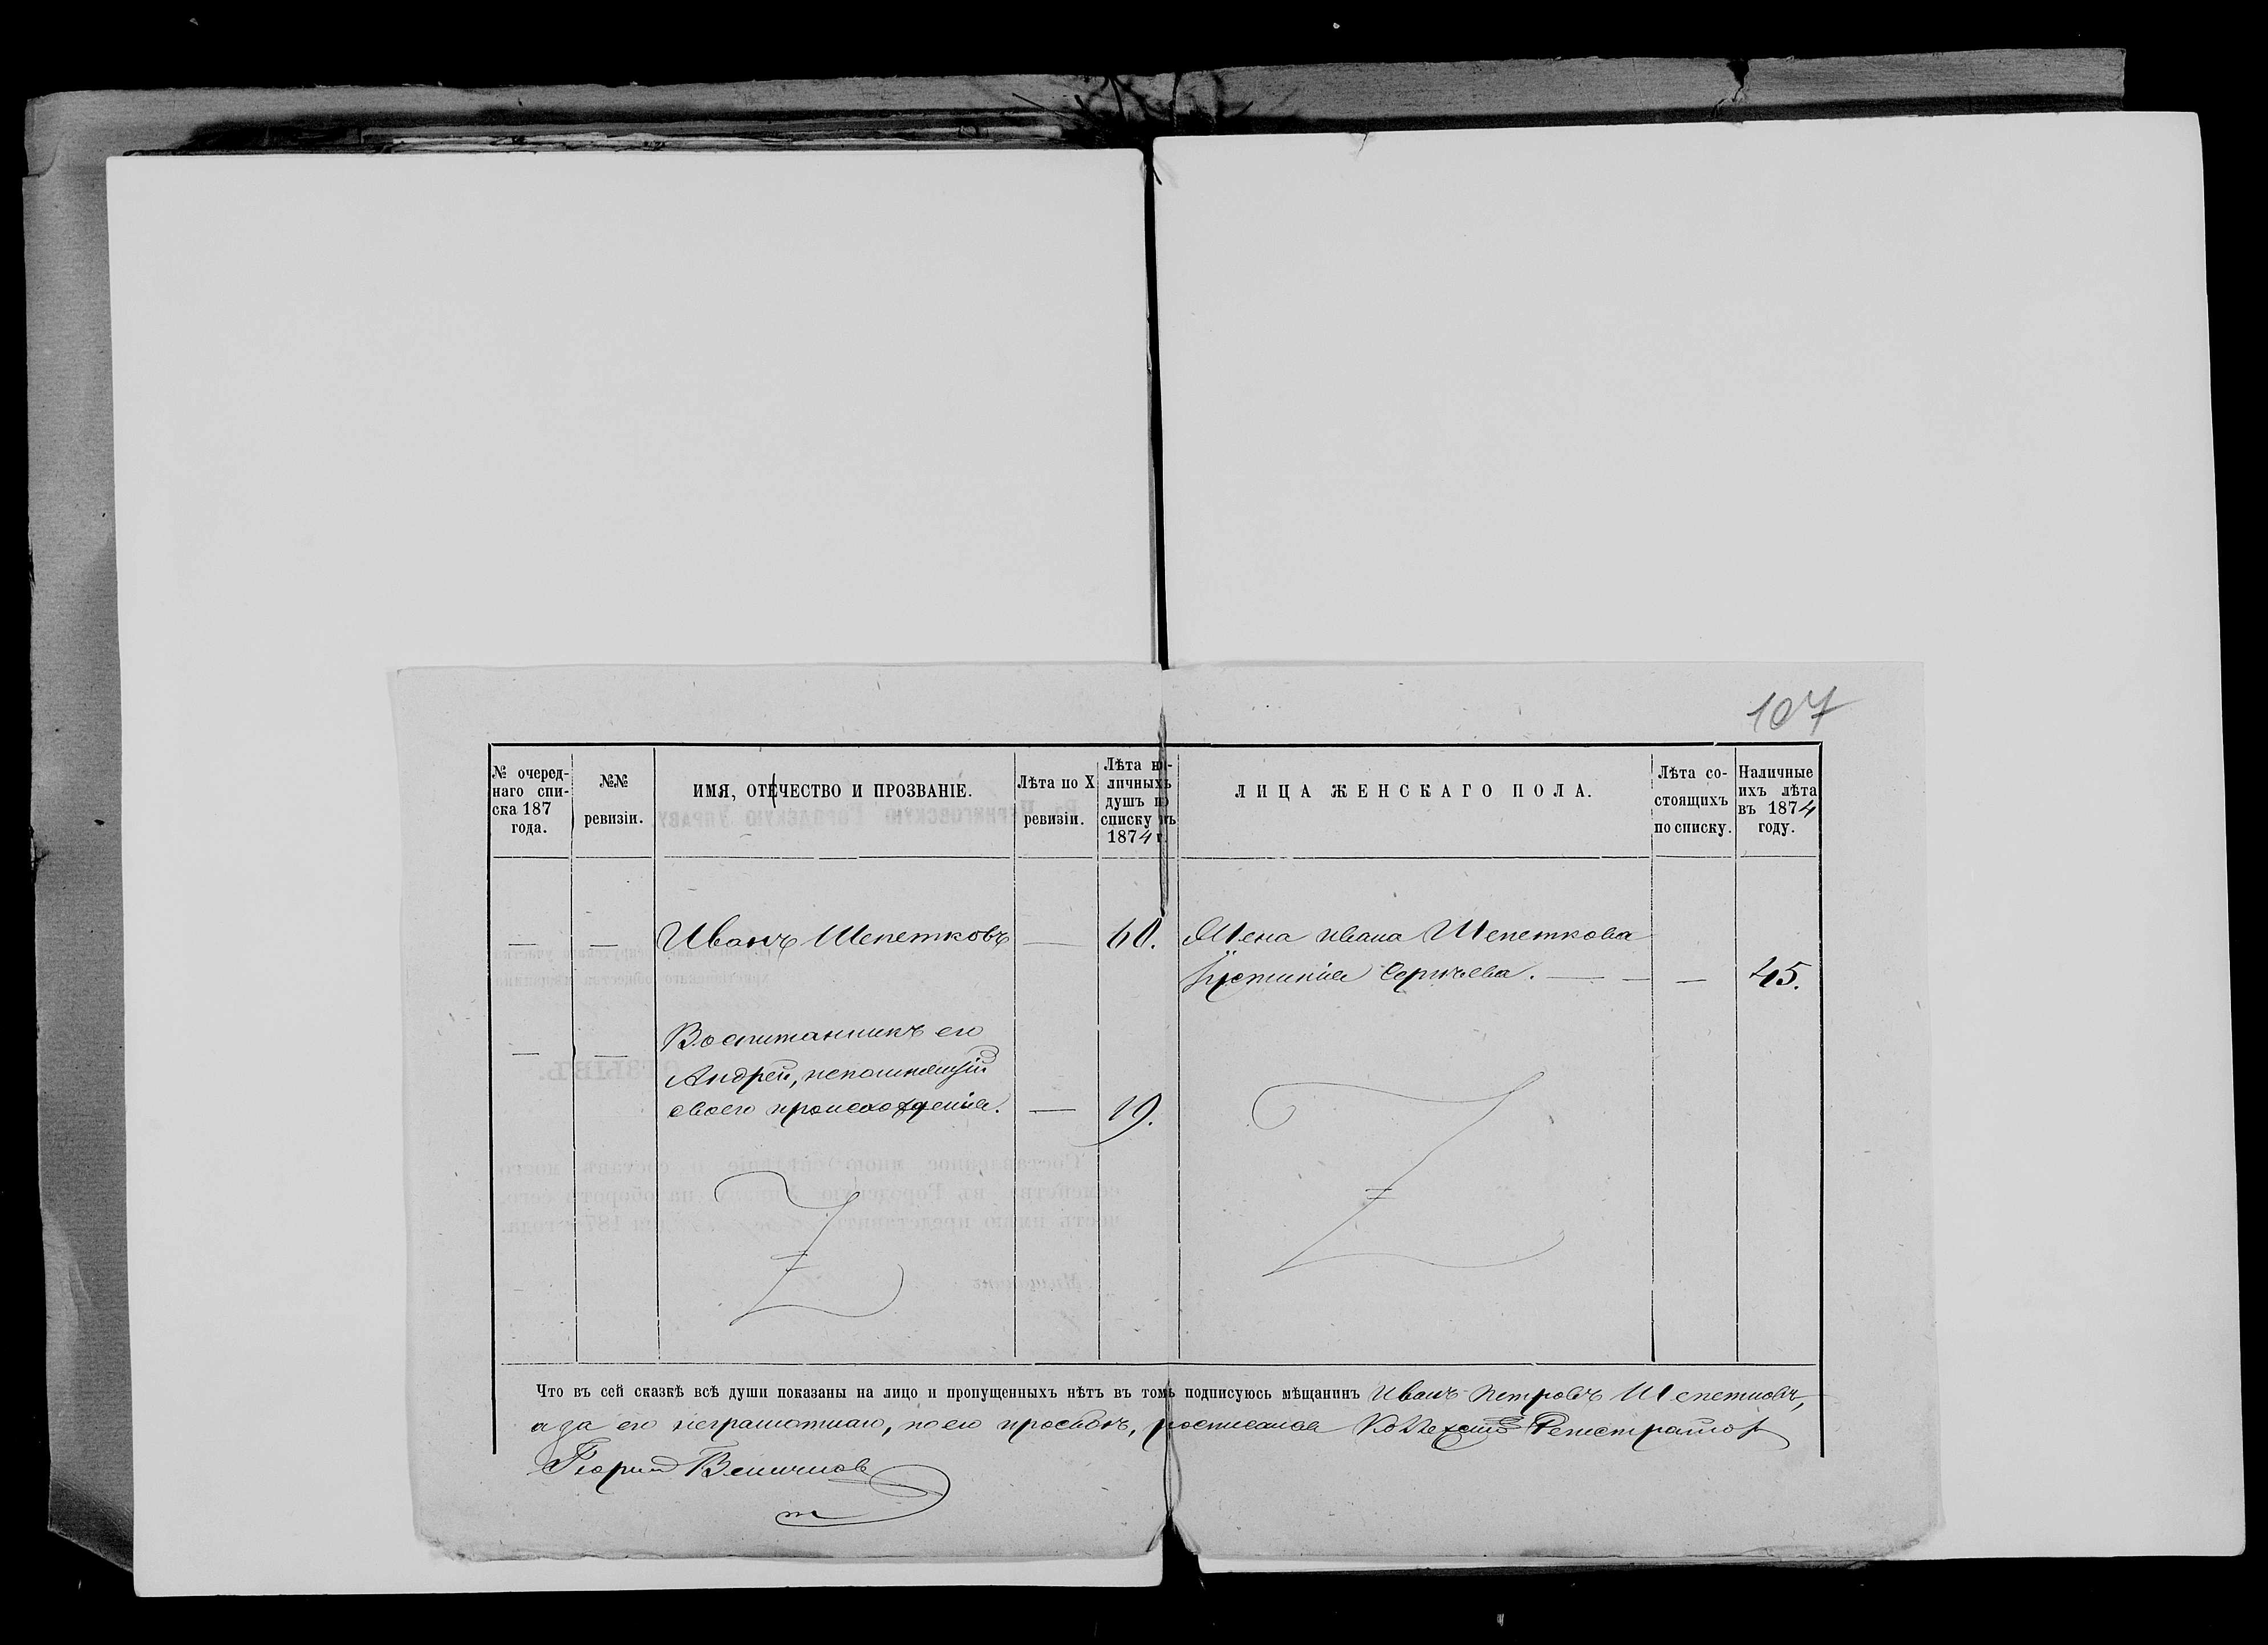 107
№ очеред-
наго спи-
ска 187
года.
№№
ревизіи.
ИМЯ, ОТЕЧЕСТВО И ПРОЗВАНІЕ.
Лѣта по X
ревизіи.
Лѣта на-
личныхъ
душъ по
списку въ
1874 г.
ЛИЦА ЖЕНСКАГО ПОЛА.
Лѣта со-
стоящихъ
по списку.
Наличные
ихъ лѣта
въ 1874
году.
— — Иванъ Шепетковъ — 60. Жена Ивана Шепеткова
Іустинія Сергѣева. — — — 45.
— — Воспитанникъ его
Андрей, непомнящій
своего происхожденія. — 19.
Что въ сей сказкѣ всѣ души показаны на лицо и пропущенныхъ нѣтъ въ томъ подписуюсь мѣщанинъ Иванъ Петровъ Шепетковъ,
а за его неграмотнаго, по его просьбѣ, росписался Коллежскій Регистраторъ
Георгій